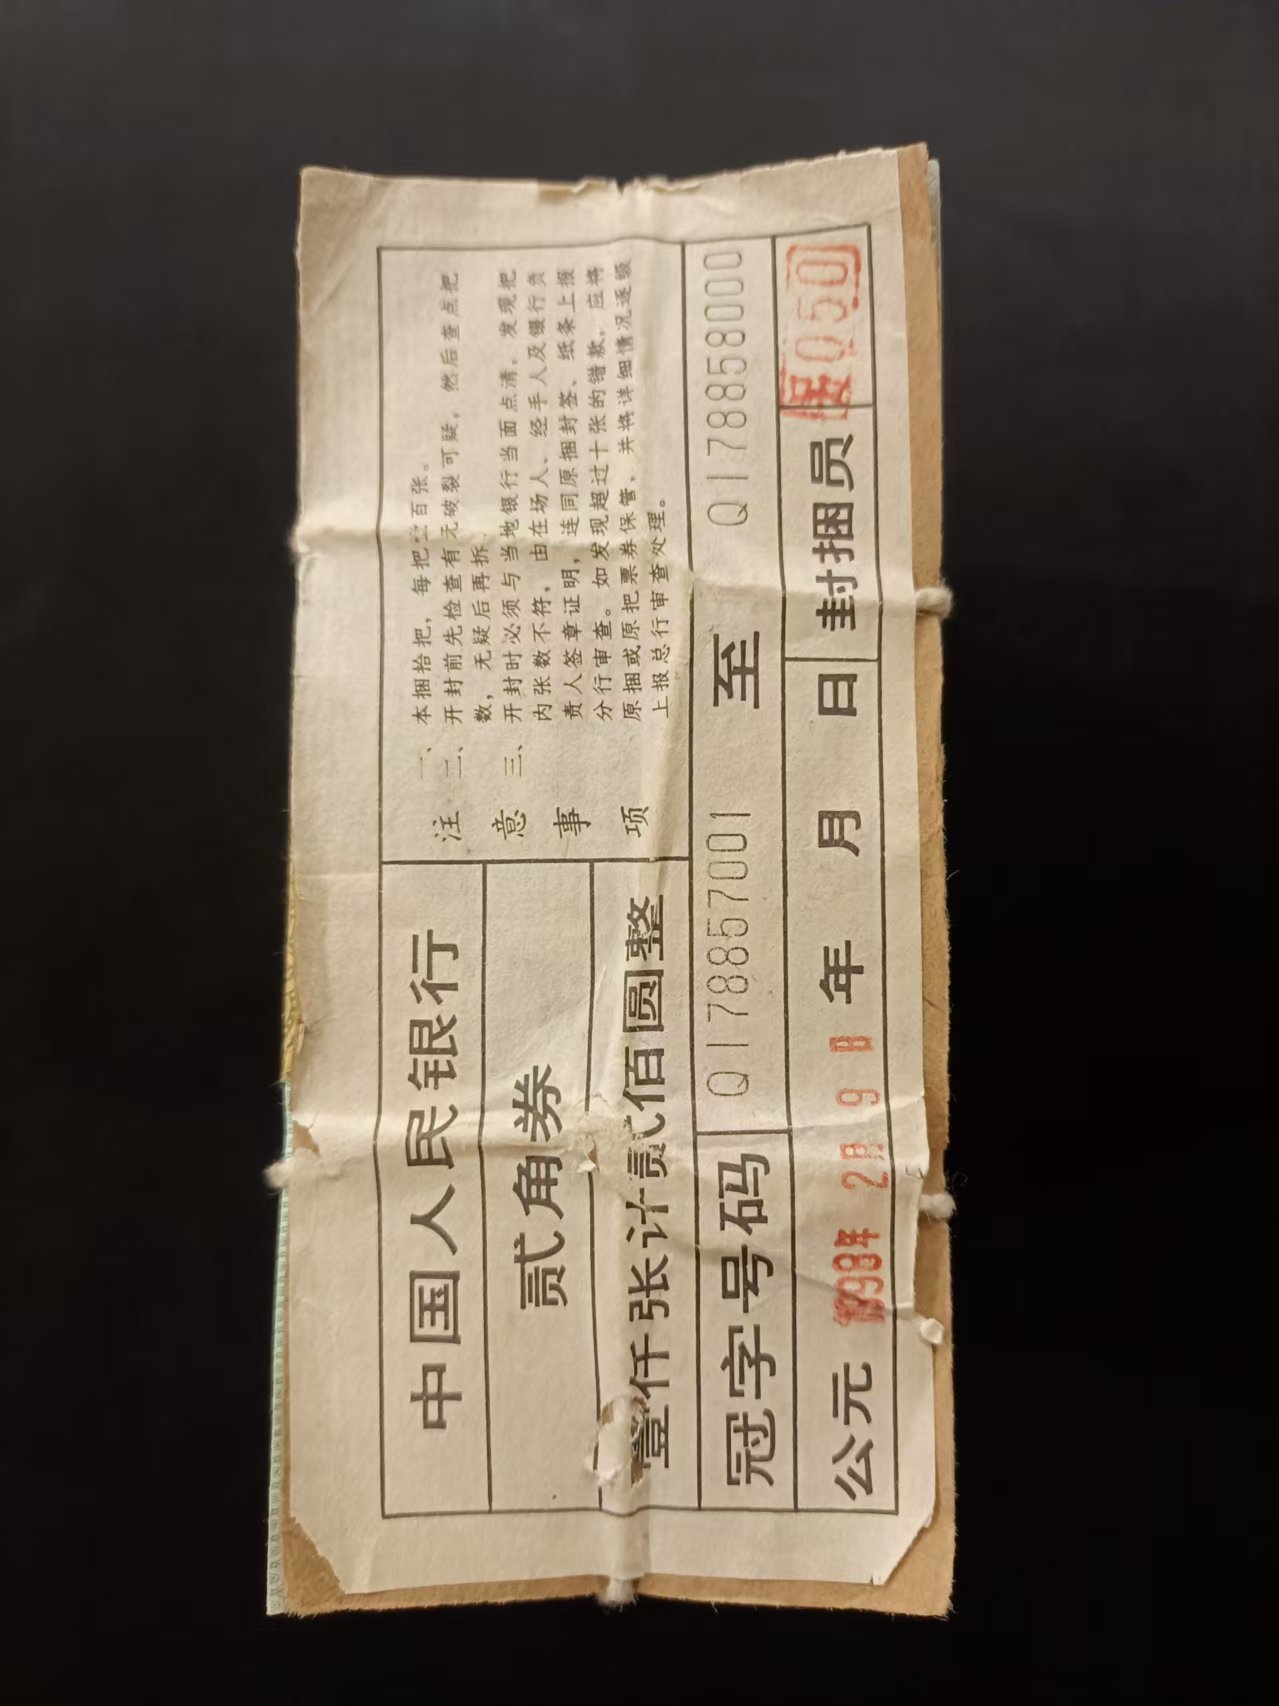 中国人民银行
贰角券
壹仟张计贰佰圆整
注意事项
一、本捆拾把，每把壹百张。
二、开封前先检查有无破裂可疑，然后查点把
数，无疑后再拆。
三、开封时必须与当地银行当面点清，发现把
内张数不符，由在场人、经手人及银行负
责人签章证明，连同原捆封签、纸条上报
分行审查。如发现超过十张的错款，应将
原捆或原把票券保管，并将详细情况逐级
上报总行审查处理。
冠字号码 Q178857001 至 Q178858000
公元 1998年 2月 9日 年 月 日 封捆员 050